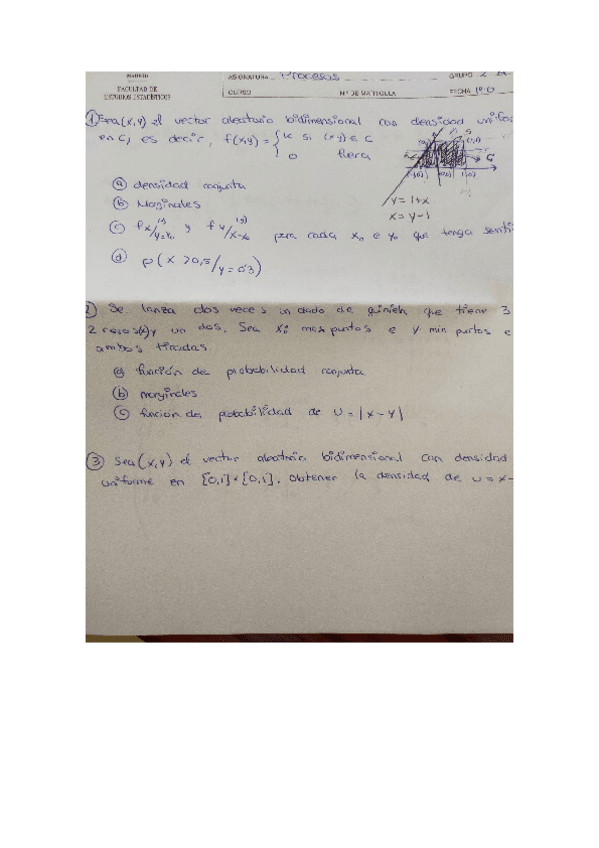 MADRID
FACULTAD DE
ESTUDIOS ESTADÍSTICOS
ASIGNATURA Procesos GRUPO 2
CURSO Nº DE MATRICULA FECHA
① Sea (X,Y) el vector aleatorio bidimensional con densidad unifo
en C, es decir, f(x,y) = { k si (x,y) ∈ C
0 fuera
y = 1+x
x = y-1
ⓐ densidad conjunta
ⓑ Marginales
ⓒ y para cada x₀ e y₀ que tenga senti
ⓓ P(X > 0,5 / y = 0'3)
2) Se lanza dos veces un dado de que tiene 3
2 y un dos. Sea X: max puntos e Y min puntos e
ambas tiradas.
ⓐ función de probabilidad conjunta
ⓑ marginales
ⓒ funcion de probabilidad de U = |X - Y|
③ Sea (X,Y) el vector aleatorio bidimensional con densidad
uniforme en [0,1] × [0,1]. Obtener la densidad de U = X -